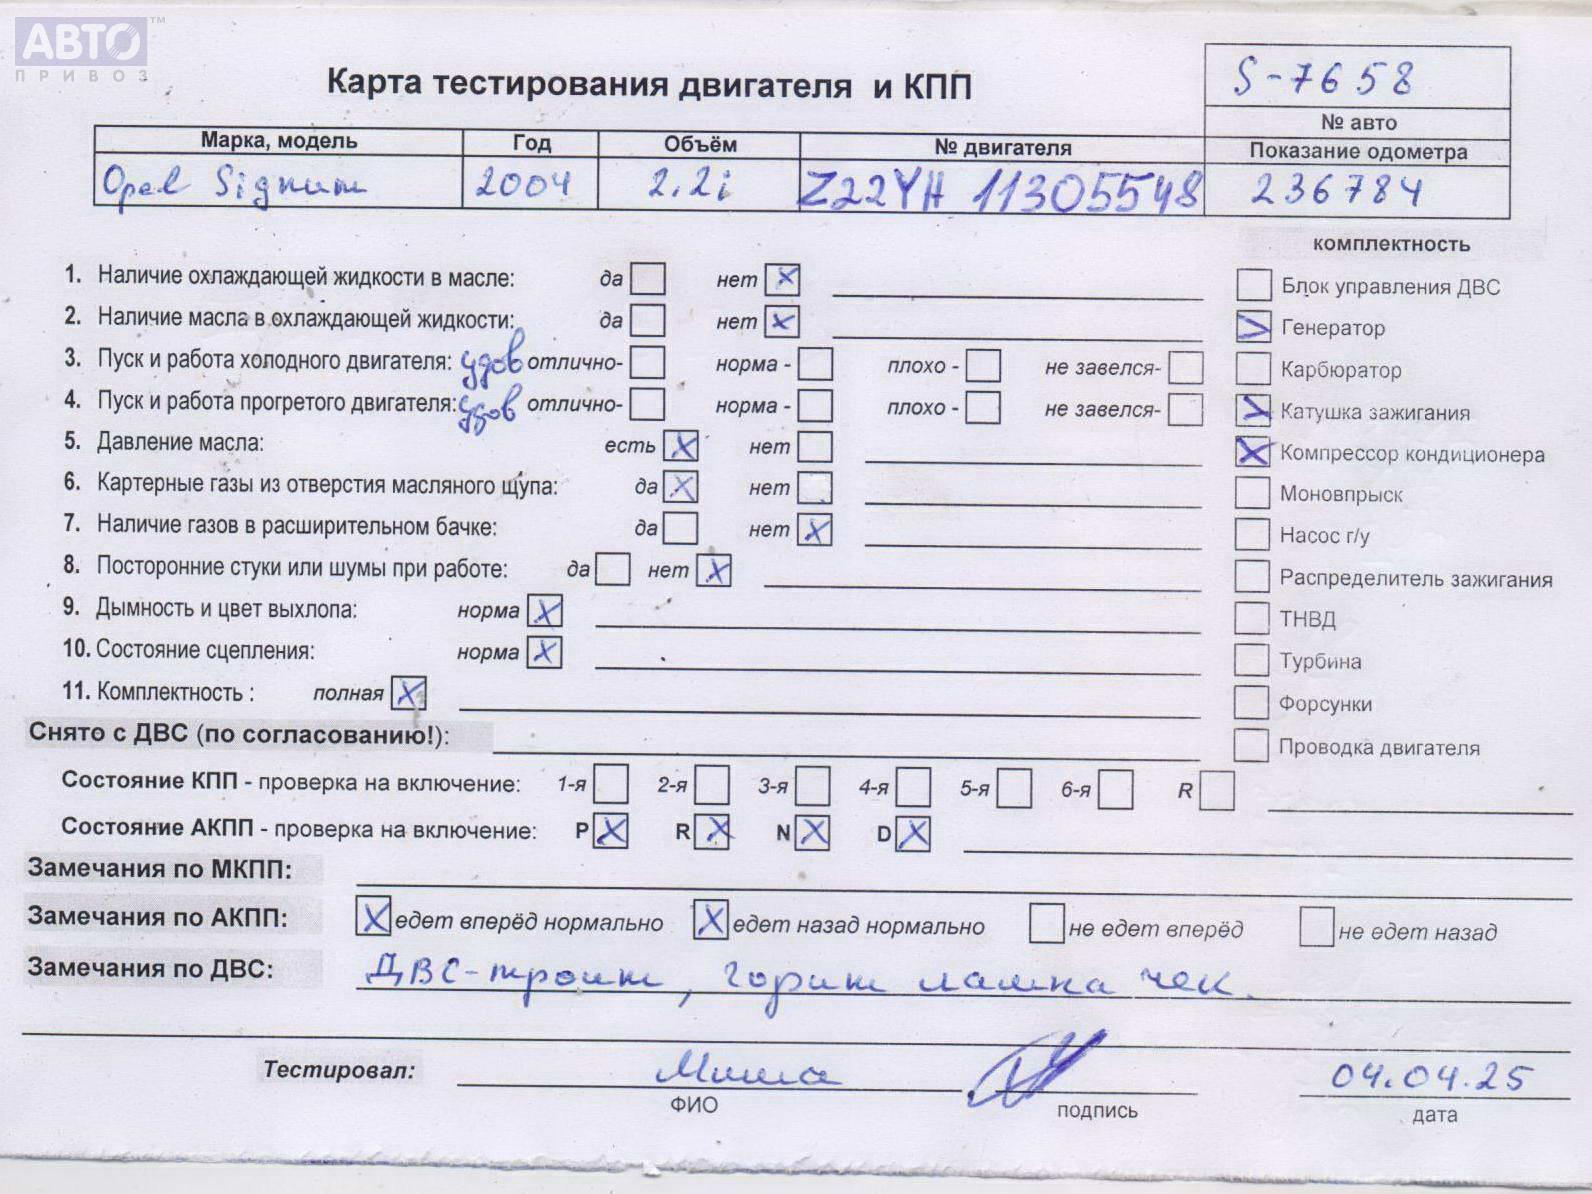 АВТО™
ПРИВОЗ
Карта тестирования двигателя и КПП
S-7658
№ авто
Марка, модель Год Объём № двигателя Показание одометра
Opel Signum 2004 2.2i Z22YH 11305548 236784
комплектность
1. Наличие охлаждающей жидкости в масле: да нет X
Блок управления ДВС
2. Наличие масла в охлаждающей жидкости: да нет X
Генератор
3. Пуск и работа холодного двигателя: удов отлично- норма - плохо - не завелся-
Карбюратор
4. Пуск и работа прогретого двигателя: удов отлично- норма - плохо - не завелся-
Катушка зажигания
5. Давление масла: есть X нет
X Компрессор кондиционера
6. Картерные газы из отверстия масляного щупа: да X нет
Моновпрыск
7. Наличие газов в расширительном бачке: да нет X
Насос г/у
8. Посторонние стуки или шумы при работе: да нет X
Распределитель зажигания
9. Дымность и цвет выхлопа: норма X
ТНВД
10. Состояние сцепления: норма X
Турбина
11. Комплектность : полная X
Форсунки
Снято с ДВС (по согласованию!):
Проводка двигателя
Состояние КПП - проверка на включение: 1-я 2-я 3-я 4-я 5-я 6-я R
Состояние АКПП - проверка на включение: P X R X N X D X
Замечания по МКПП:
Замечания по АКПП: X едет вперёд нормально X едет назад нормально не едет вперёд не едет назад
Замечания по ДВС: ДВС-троит, горит лампа чек.
Тестировал: Миша 04.04.25
ФИО подпись дата